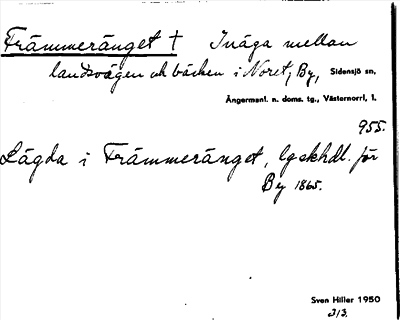 Främmeränget † Inäga mellan
landsvägen och bäcken i Noret, By, Sidensjö sn,
Ångermanl. n. doms. tg., Västernorrl. l.
955.
Lägda i Främmeränget, lgskhdl. för
By 1865.
Sven Hiller 1950
313.